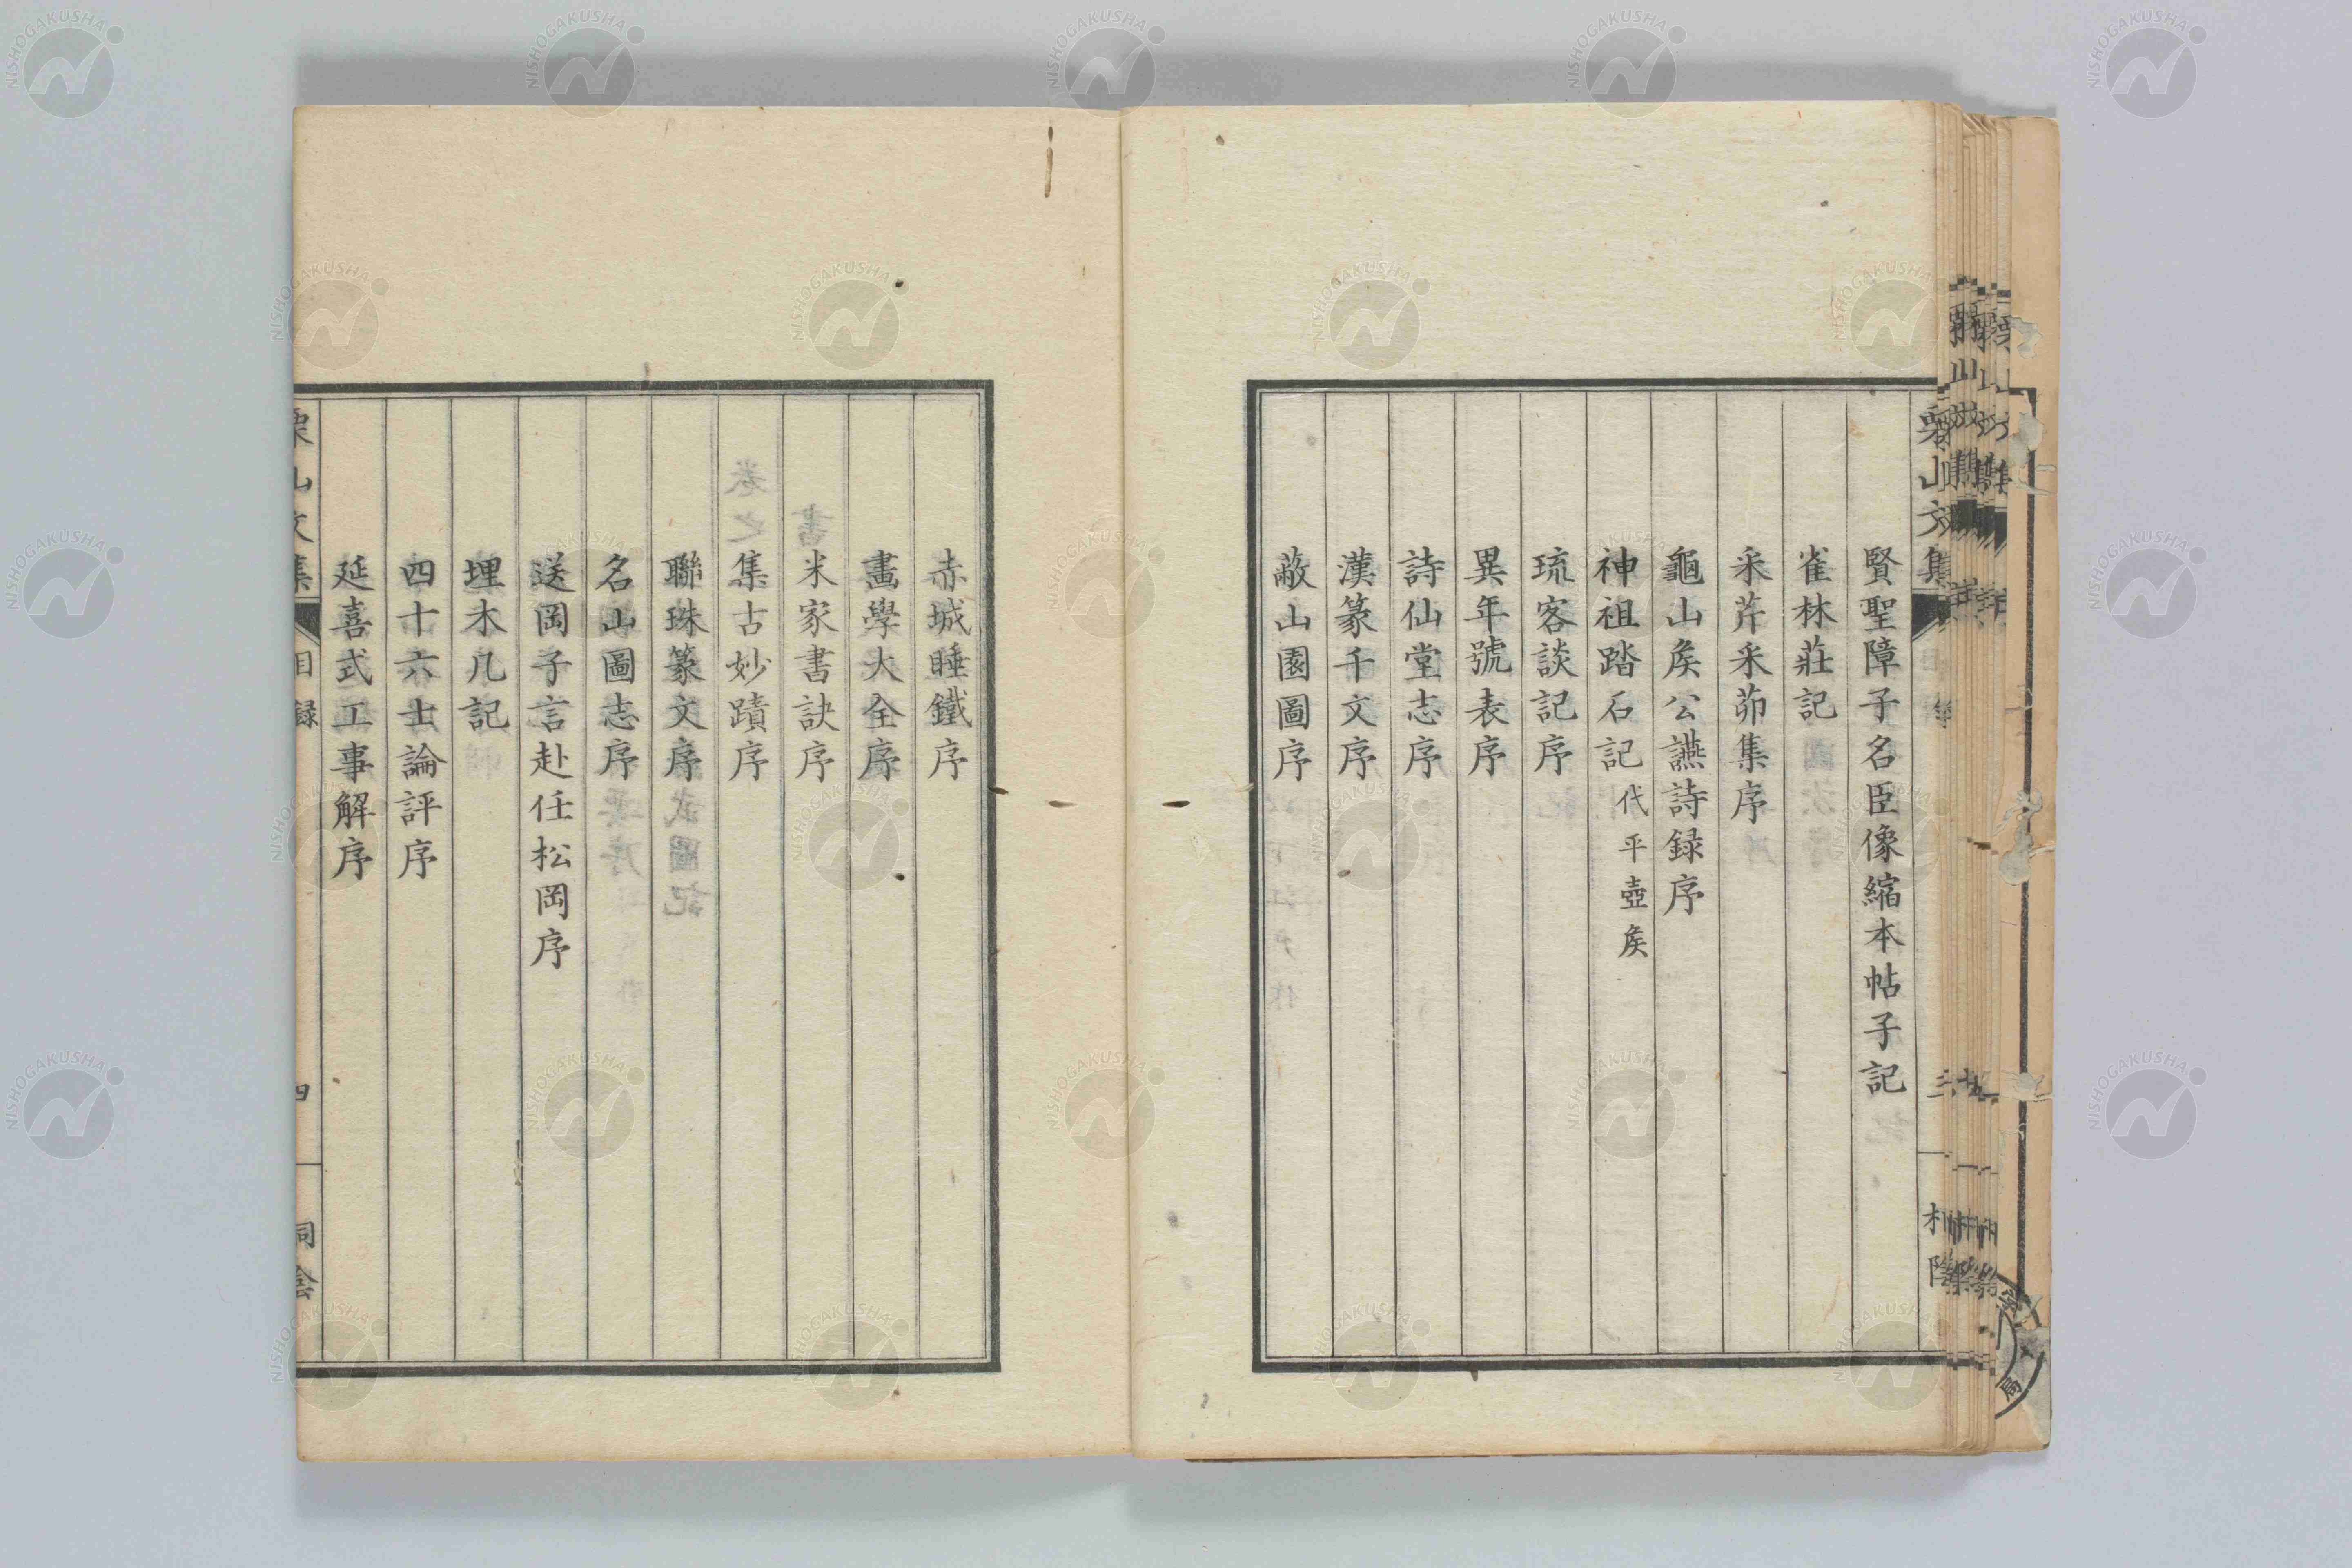 栗山文集
三
賢聖障子名臣像縮本帖子記
雀林莊記
采芹采茆集序
龜山矦公讌詩録序
神祖踏石記代平壺矦
琉客談記序
異年號表序
詩仙堂志序
漢篆千文序
蔽山園圖序
赤城睡鐵序
畫學大全序
米家書訣序
集古妙蹟序
聯珠篆文序
名山圖志序
送岡子言赴任松岡序
埋木几記
四十六士論評序
延喜式工事解序
栗山文集
目録
四
桐陰
NISHOGAKUSHA